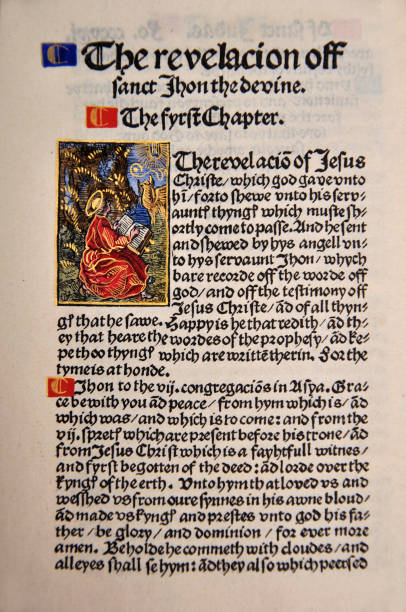 The revelacion off
sanct Jhon the devine.
The fyrst Chapter.
The revelaciõ of Jesus
Christe/which god gave vnto
hī/ forto shewe vnto his ser⸗
vauntꝭ thyngꝭ which muste sh⸗
ortly come to passe. And he sent
and shewed by hys angell vn⸗
to hys servaunt Jhon/ whych
bare recorde off the worde off
god/and off the testimony off
Jesus Christe/ ãd of all thyn⸗
gꝭ that he sawe. Happy is he that redith/ ãd th⸗
ey that heare the wordes of the prophesy/ ãd ke⸗
pe thoo thyngꝭ which are writtẽ therin. For the
tyme is at honde.
Jhon to the vij. congregaciõs in Asya. Gra⸗
ce be with you ãd peace/ from hym which is/ ãd
which was/ and which is to come: and from the
vij. spretꝭ which are present before his trone/ ãd
from Jesus Christ which is a fayhtfull witnes/
and fyrst begotten of the deed: ãd lorde over the
kyngꝭ of the erth. Vnto hym that loved vs and
wesshed vs from oure synnes in his awne bloud/
ãd made vs kyngꝭ and prestes vnto god his fa⸗
ther/ be glory/ and dominion/ for ever more
amen. Beholde he commeth with cloudes/ and
all eyes shall se hym: ãd they also which peersed